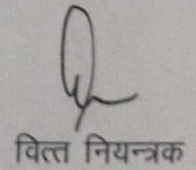 वित्त नियन्त्रक